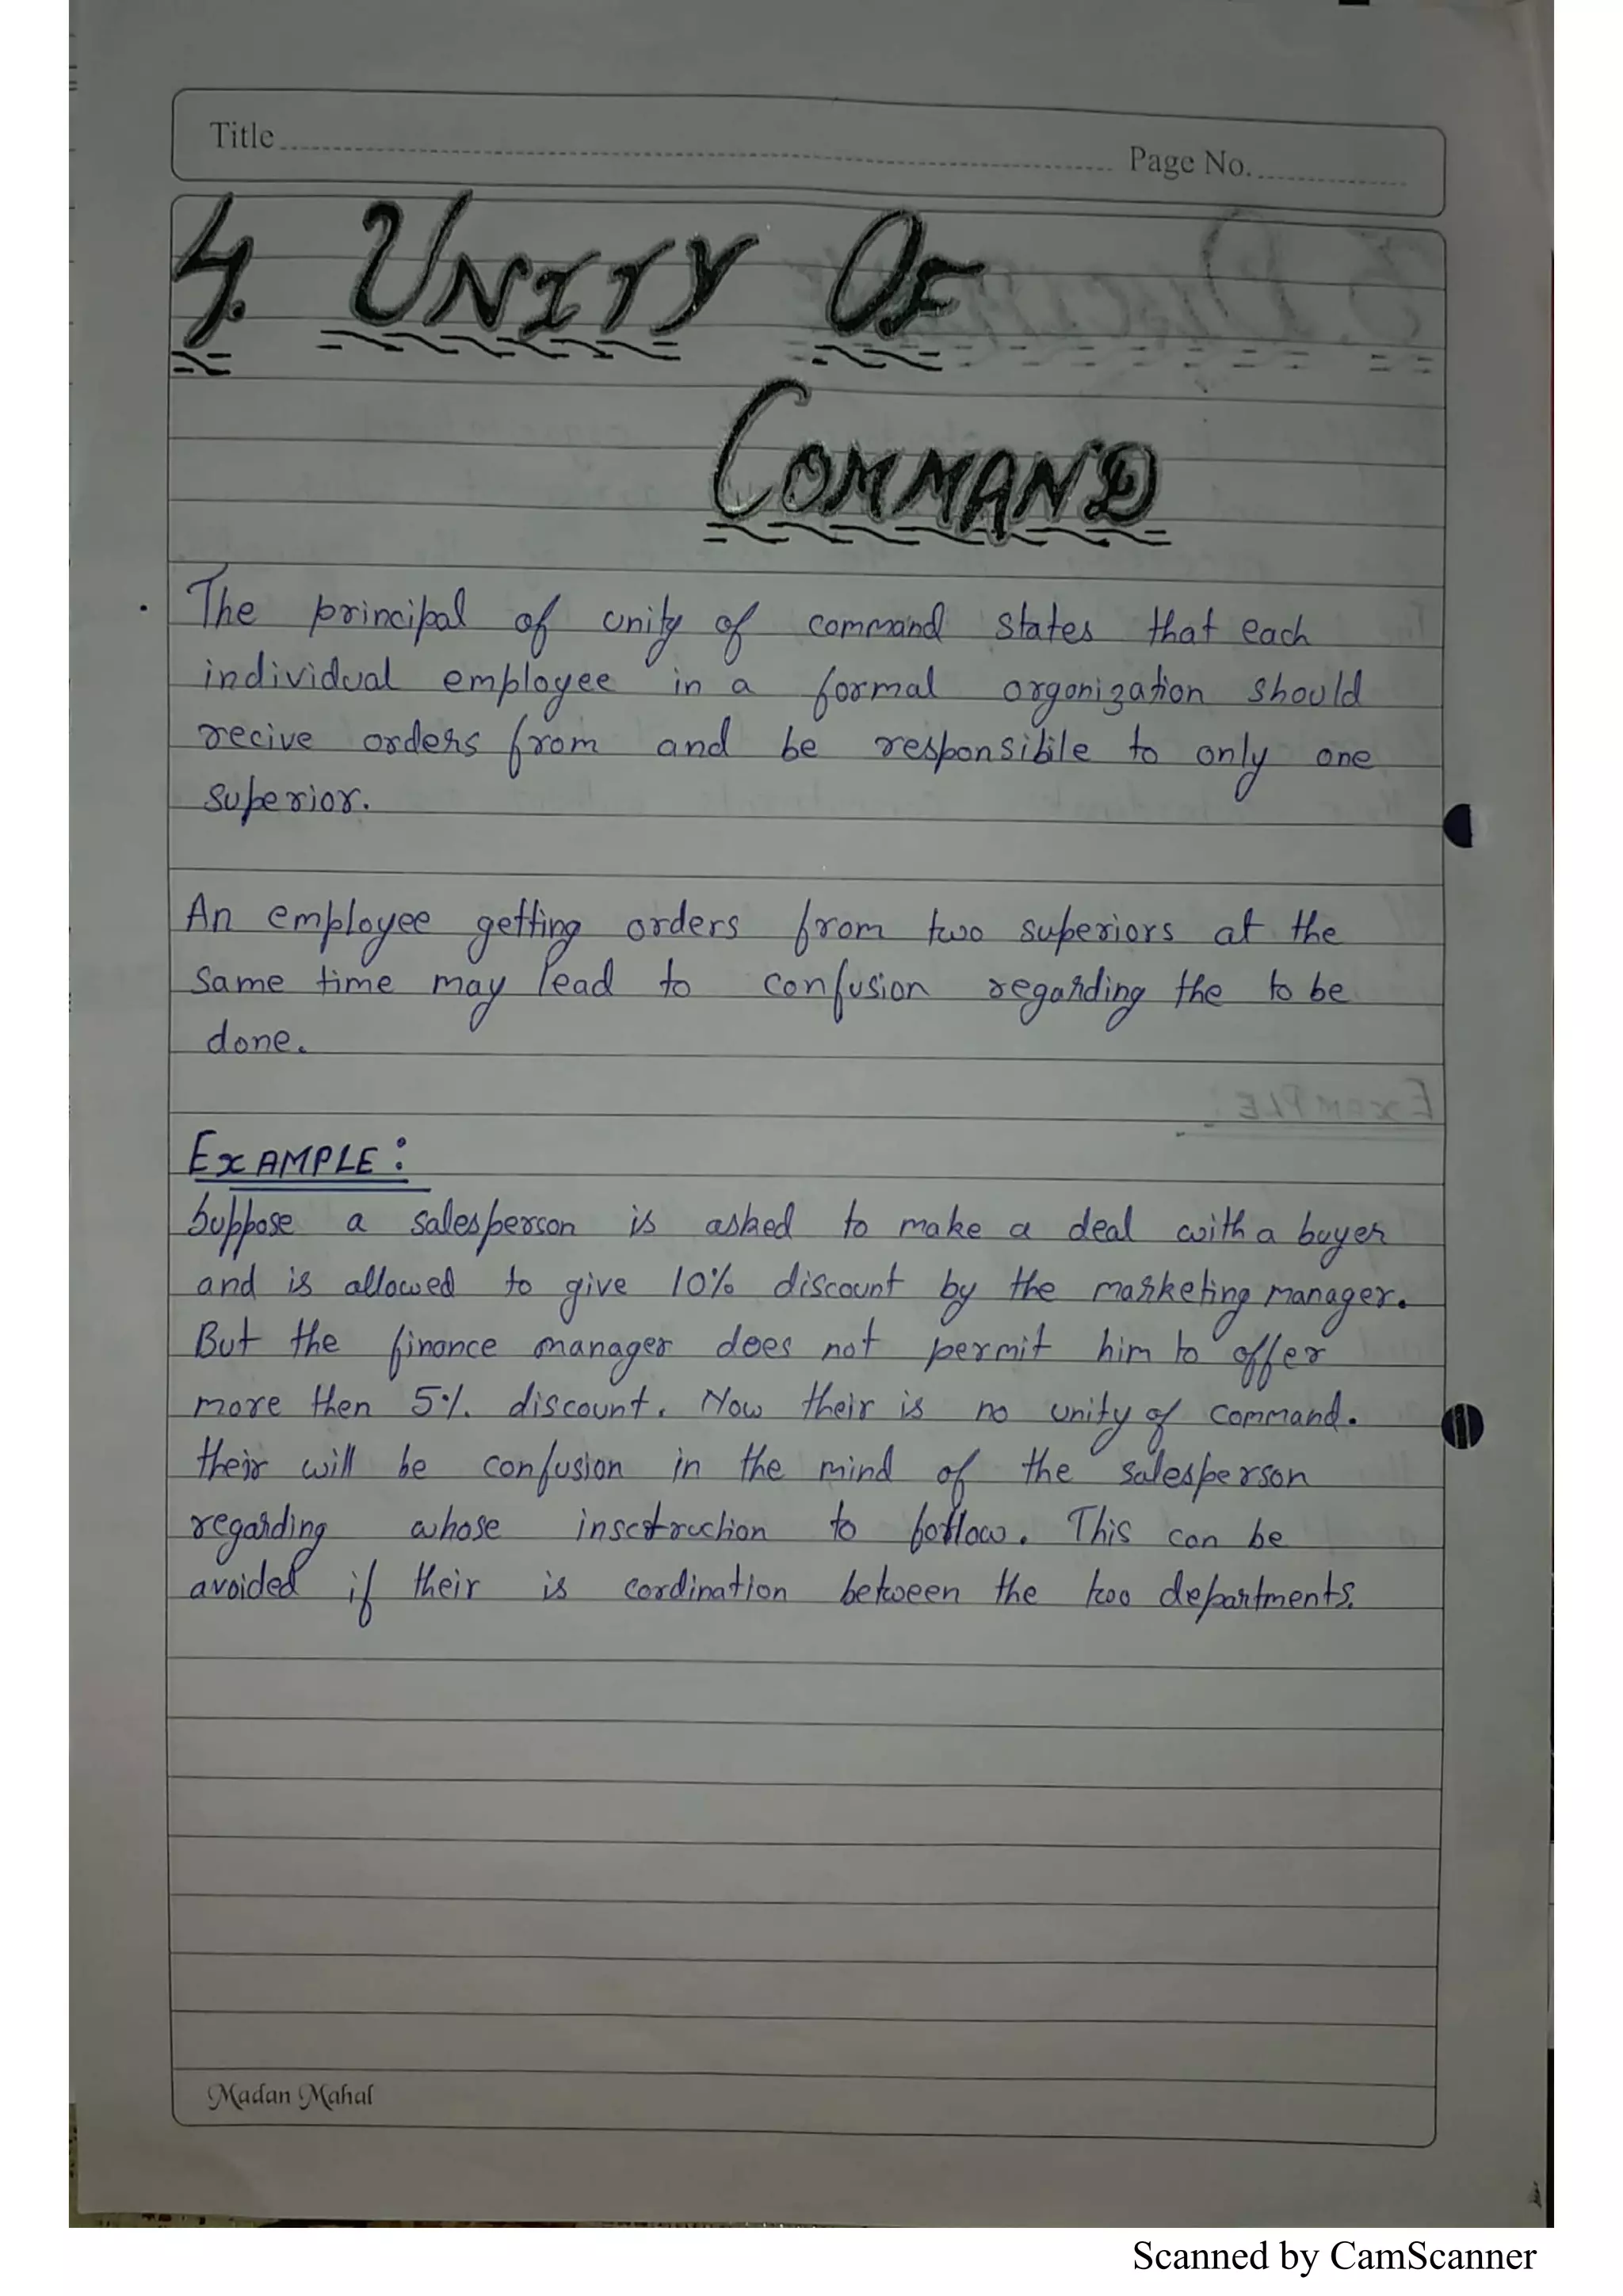 Title
Page No.
4. UNITY OF
COMMAND
The principal of unity of command states that each
individual employee in a formal organization should
recive orders from and be responsible to only one
superior.
An employee getting orders from two superiors at the
same time may lead to confusion regarding the to be
done.
EXAMPLE:
Suppose a salesperson is asked to make a deal with a buyer
and is allowed to give 10% discount by the marketing manager.
But the finance manager does not permit him to offer
more then 5% discount. Now their is no unity of command.
their will be confusion in the mind of the salesperson
regarding whose to follow. This can be
avoided if their is cordination between the two departments.
Madan Mahal
Scanned by CamScanner